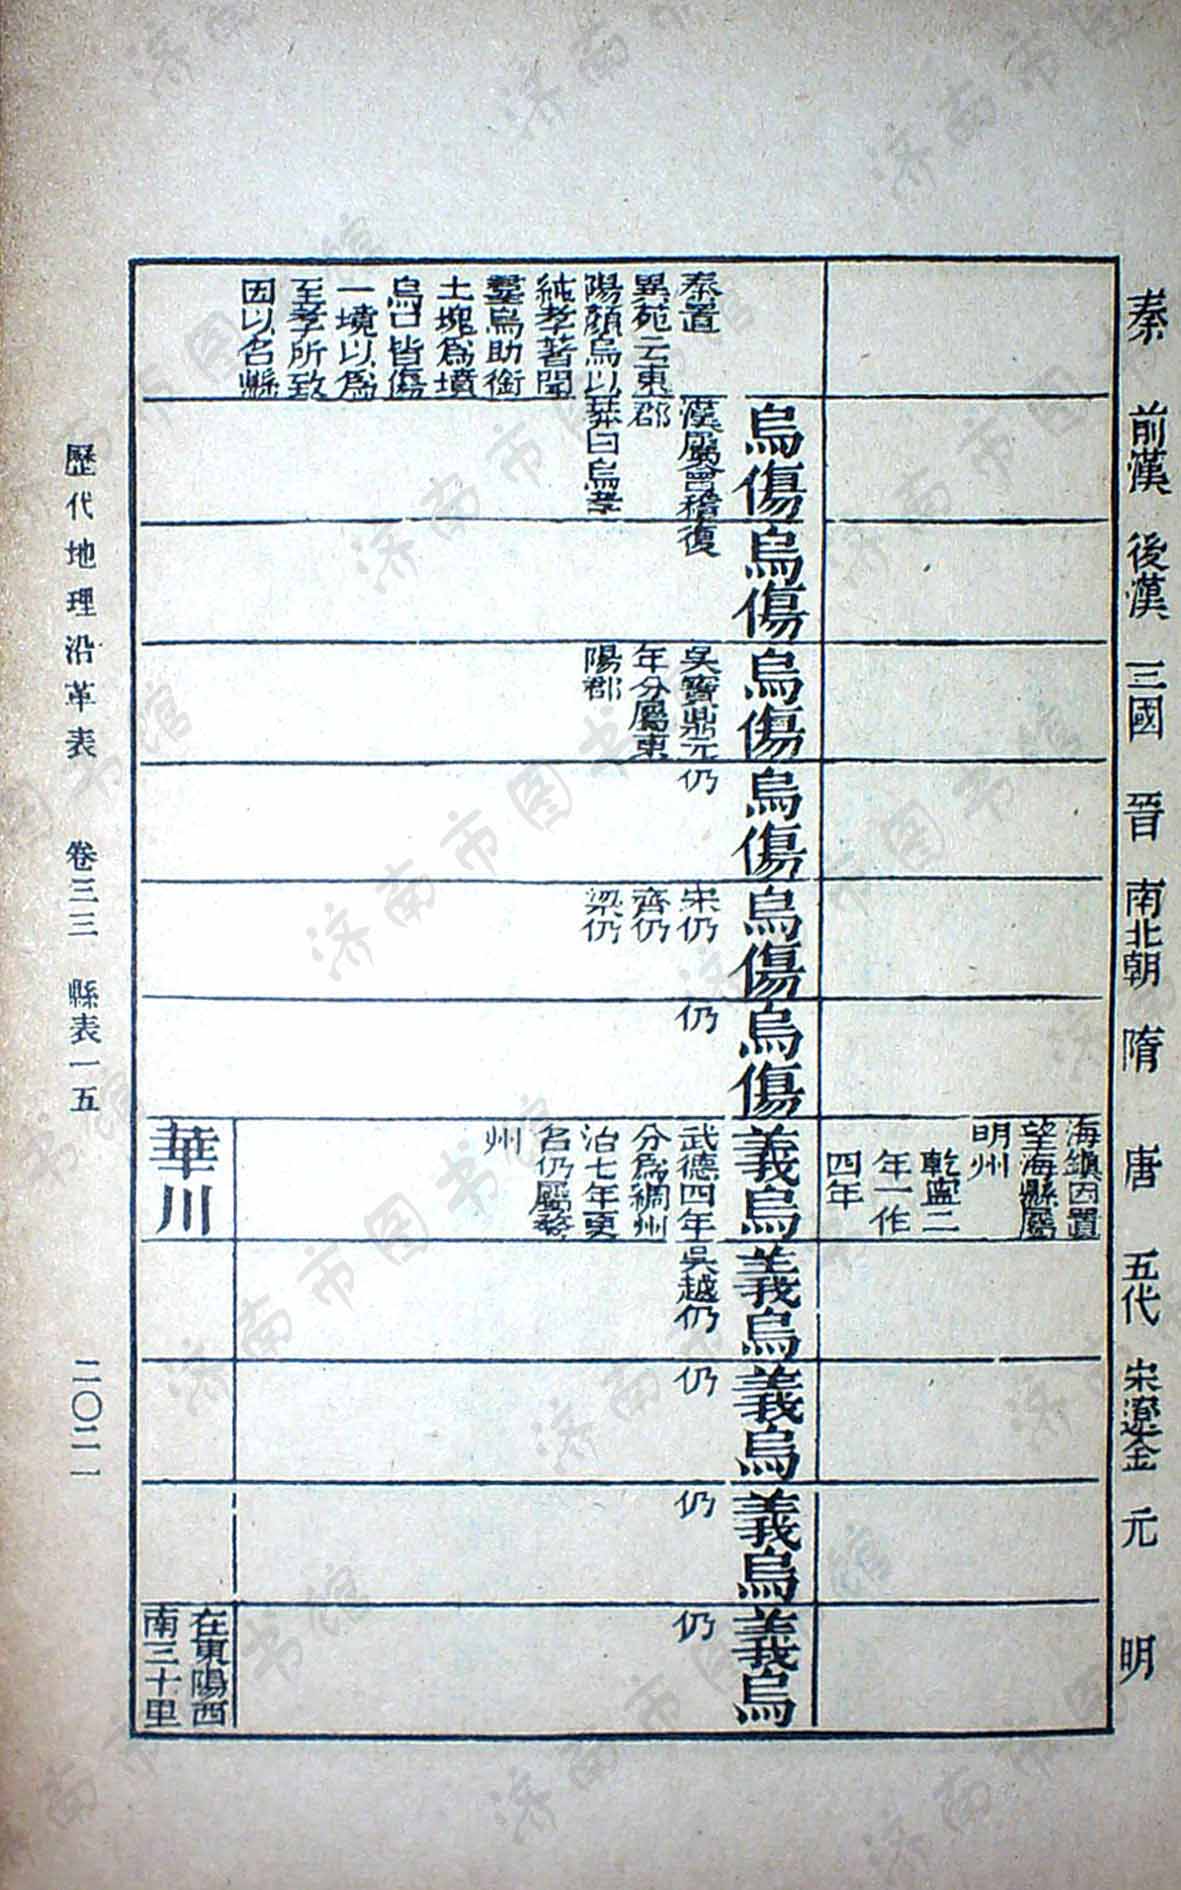 秦
前漢
後漢
三國
晉
南北朝
隋
唐
五代
宋遼金
元
明
海鎮因置
望海縣屬
明州
乾寧二
年一作
四年
秦置
異苑云東
陽顏烏以
純孝著聞
羣烏助銜
土塊為墳
烏口皆傷
一境以為
至孝所致
因以名縣
烏傷
漢屬會稽
郡
莽曰烏孝
烏傷
復
烏傷
吳寶鼎元
年分屬東
陽郡
烏傷
仍
烏傷
宋仍
齊仍
梁仍
烏傷
仍
義烏
武德四年
分為綢州
治七年更
名仍屬婺
州
義烏
吳越仍
義烏
仍
義烏
仍
義烏
仍
華川
在東陽西
南三十里
歷代地理沿革表 卷三三 縣表一五 二〇二一
济南市图书馆